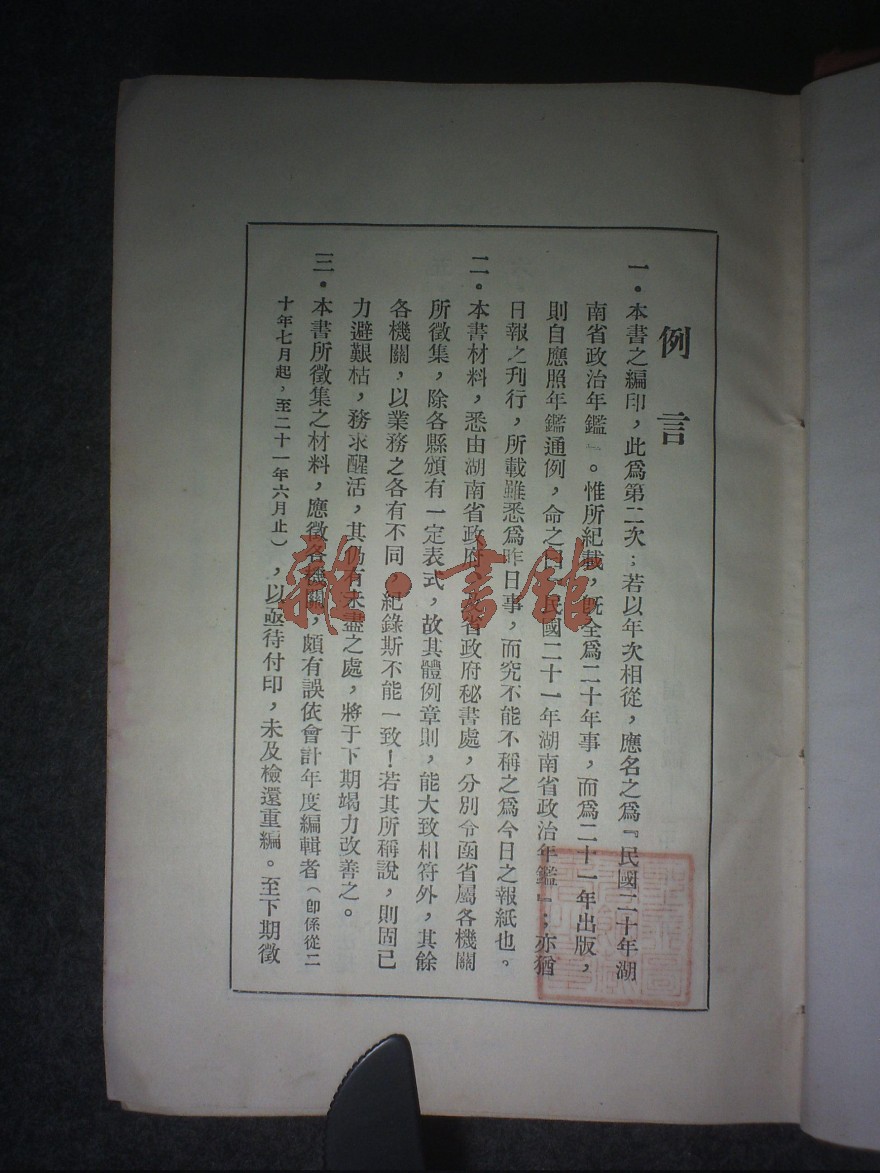 例言
一。本書之編印，此爲第二次；若以年次相從，應名之爲『民國二十年湖
南省政治年鑑』。惟所紀載，既全爲二十年事，而爲二十一年出版，
則自應照年鑑通例，命之曰『民國二十一年湖南省政治年鑑』；亦猶
日報之刊行，所載雖悉爲昨日事，而究不能不稱之爲今日之報紙也。
二。本書材料，悉由湖南省政府，省政府秘書處，分別令函省屬各機關
所徵集，除各縣頒有一定表式，故其體例章則，能大致相符外，其餘
各機關，以業務之各有不同，紀錄斯不能一致！若其所稱說，則固已
力避艱枯，務求醒活，其仍有未盡之處，將于下期竭力改善之。
三。本書所徵集之材料，應徵各機關，頗有誤依會計年度編輯者（卽係從二
十年七月起，至二十一年六月止），以亟待付印，未及檢還重編。至下期徵
雜·書館